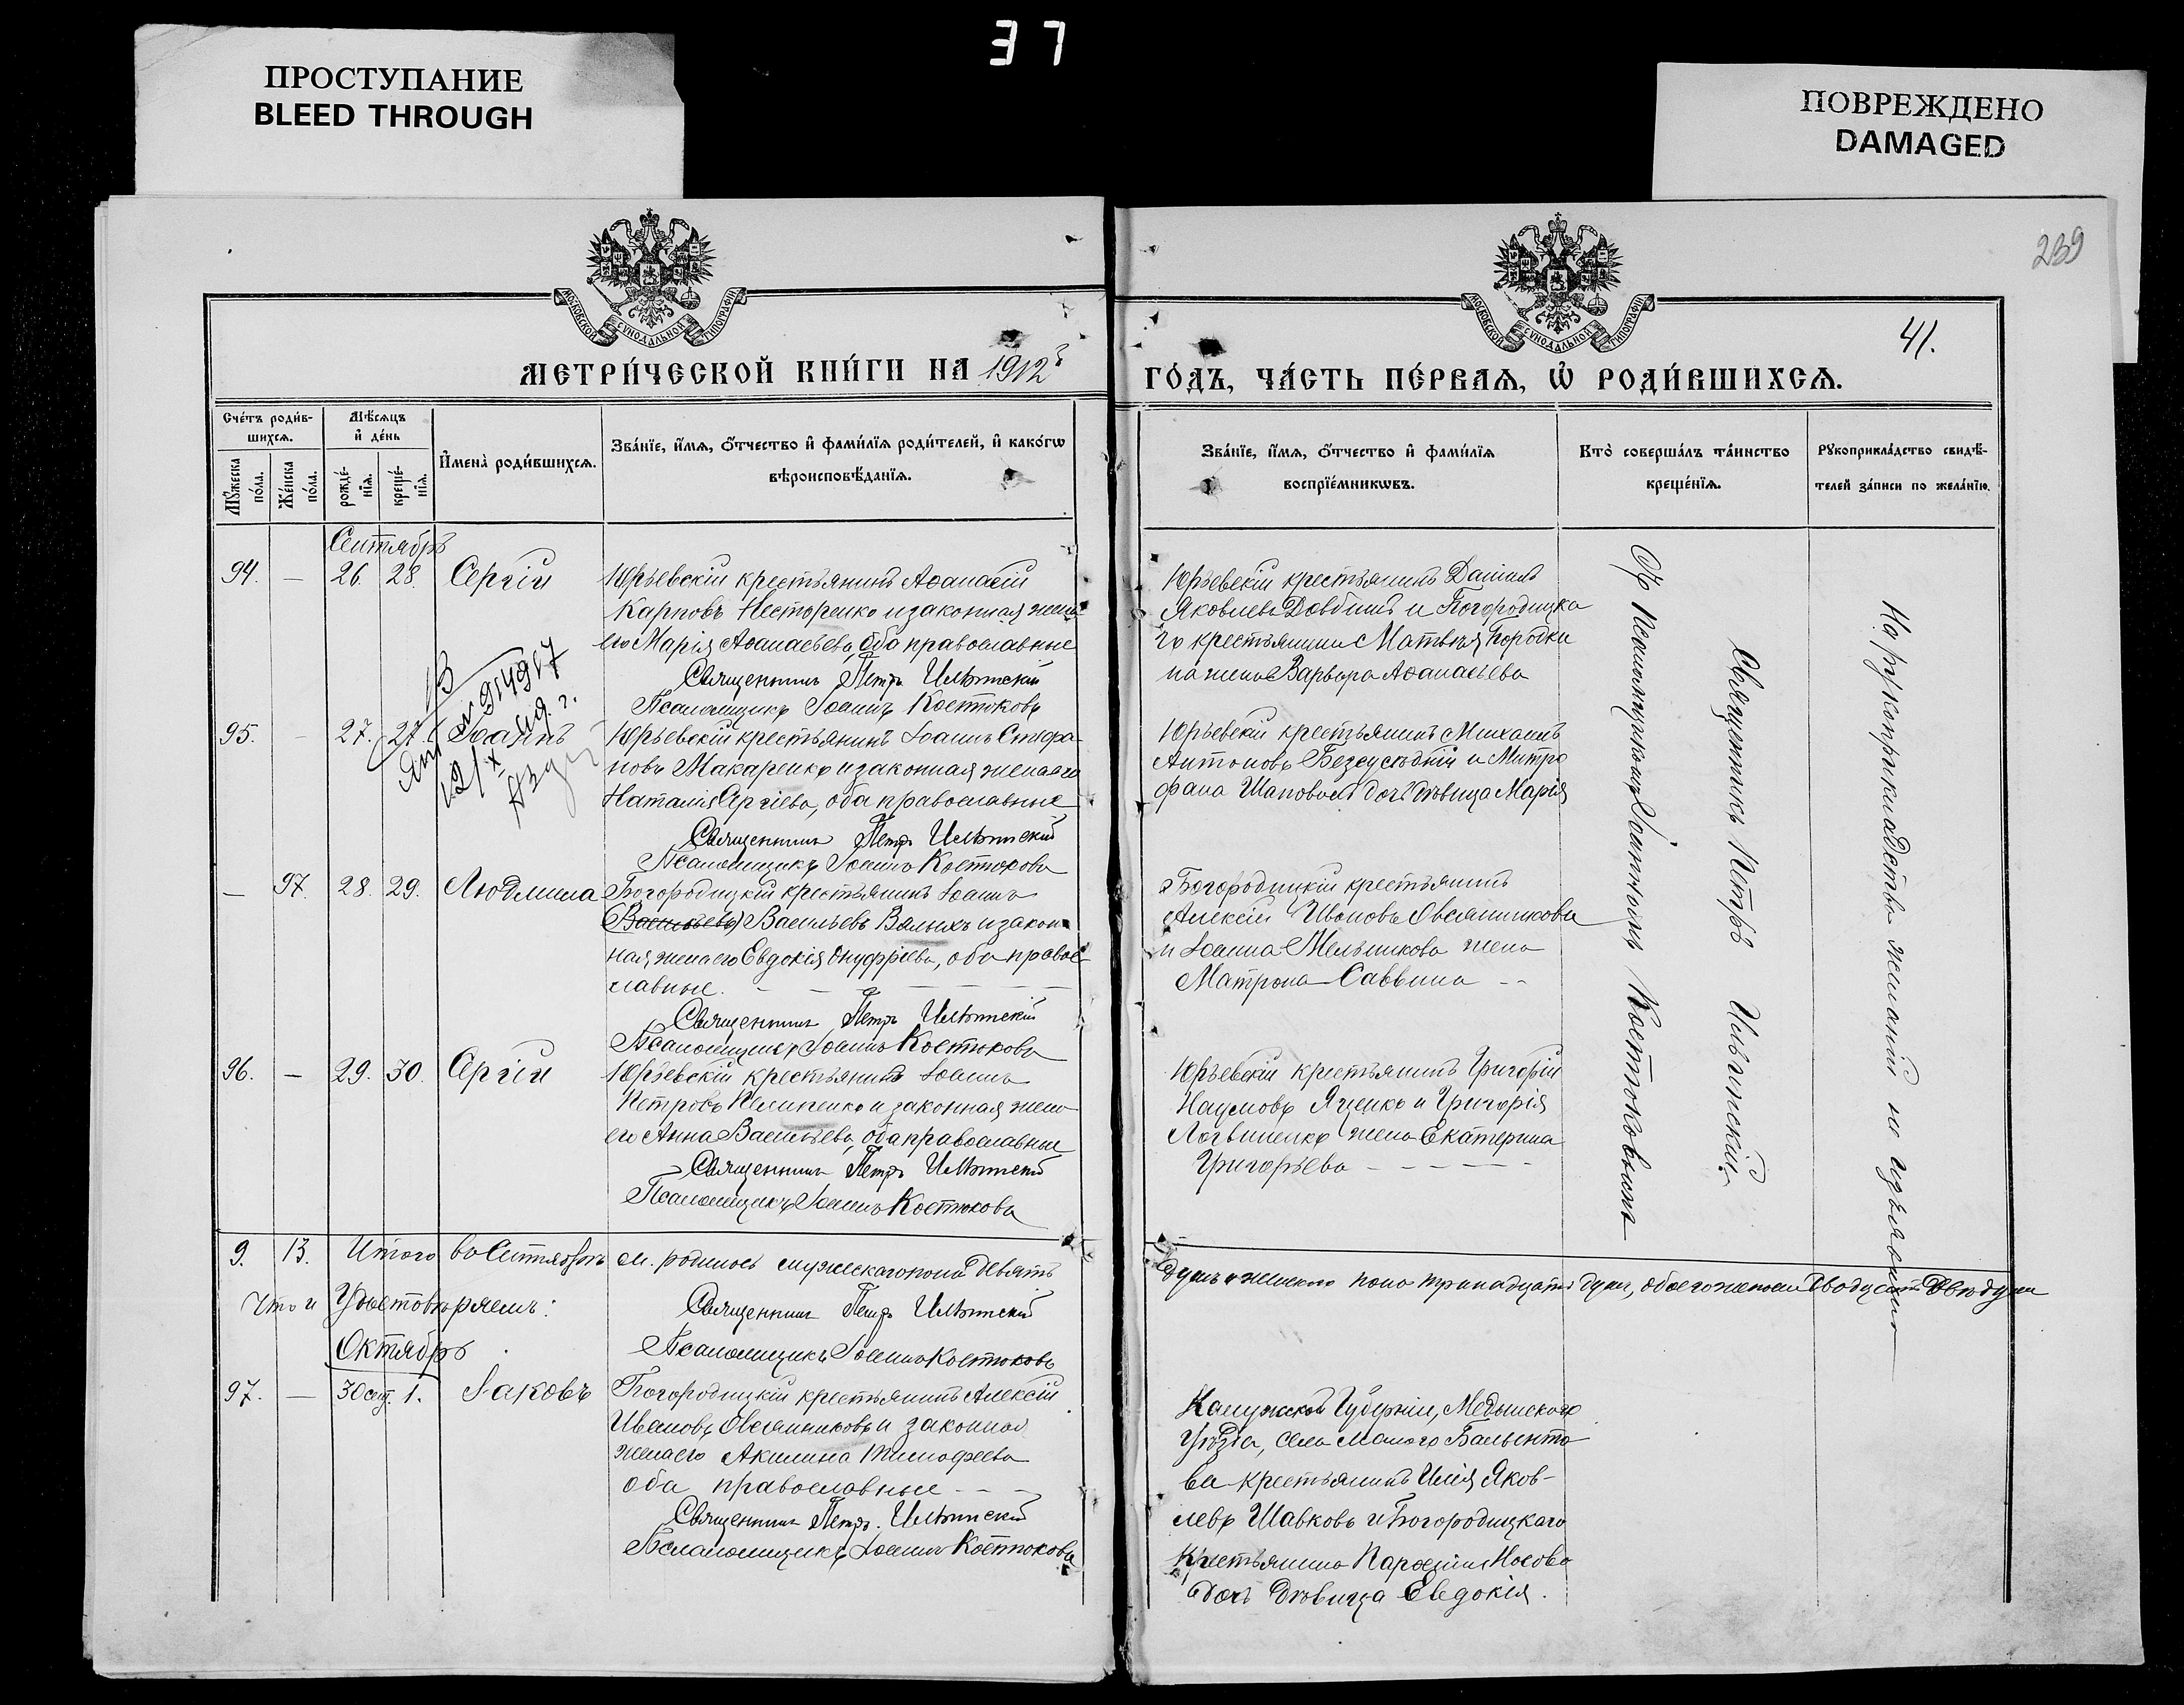 37
ПРОСТУПАНИЕ
BLEED THROUGH
ПОВРЕЖДЕНО
DAMAGED
239
МОСКОВСКОЙ СѴНОДАЛЬНОЙ ТИПОГРАФІИ
МОСКОВСКОЙ СѴНОДАЛЬНОЙ ТИПОГРАФІИ
41.
МЕТРИ́ЧЕСКОЙ КНИ́ГИ НА 1912
ГО́ДЪ, ЧА́СТЬ ПЕ́РВАЯ, Ѡ РОДИ́ВШИХСЯ.
Сче́тъ роди́в-
шихся.
Мѣ́сяцъ
и де́нь
Мꙋ́жеска
по́ла.
Же́нска
по́ла.
рожде́-
нїя.
креще́-
нїя.
И҆мена̀ роди́вшихся.
Зва́нїе, и҆́мя, ѻ҆́тчество и҆ фами́лїя роди́телей, и҆ како́гѡ
вѣроисповѣ́данїя.
Зва́нїе, и҆́мя, ѻ҆́тчество и҆ фами́лїя
воспрїе́мникѡвъ.
Кто̀ соверша́лъ та́инство
креще́нїя.
Рꙋкоприкла́дство свидѣ́-
телей за́писи по жела́нїю.
Сентябрь
94. — 26. 28. Сергій
Юрьевскій крестьянинъ Аѳанасій
Карповъ Нестеренко и законная жена
его Марія Аѳанасьева, оба православные
Священникъ Петръ Ильинскій
Псаломщикъ Іоаннъ Костюковъ
Юрьевскій крестьянинъ Даніилъ
Яковлевъ Довбишъ и Богородицка
го крестьянина Матвѣя Бородки
на жена Варвара Аѳанасьева
95. — 27. 27. Іоаннъ
Юрьевскій крестьянинъ Іоаннъ Стефа
новъ Макаренко и законная жена его
Наталія Сергіева, оба православные
Священникъ Петръ Ильинскій
Псаломщикъ Іоаннъ Костюковъ
Юрьевскій крестьянинъ Михаилъ
Антоновъ Безсусѣдній и Митро
фана Шаповала дочь дѣвица Марія
— 97. 28. 29. Людмила
Богородицкій крестьянинъ Іоаннъ
(Васильевъ) Васильевъ Валыхъ и закон
ная жена его Евдокія Онуфріева, оба правос
лавные.
Священникъ Петръ Ильинскій
Псаломщикъ Іоаннъ Костюковъ
Богородицкій крестьянинъ
Алексій Ивановъ Овсянниковъ
и Іоанна Мельникова жена
Матрона Саввина
96. — 29. 30. Сергій
Юрьевскій крестьянинъ Іоаннъ
Петровъ Пелипенко и законная жена
его Анна Васильева, оба православные
Священникъ Петръ Ильинскій
Псаломщикъ Іоаннъ Костюковъ
Юрьевскій крестьянинъ Григорій
Наумовъ Яценко и Григорія
Логвиненко жена Екатерина
Григорьева
Священникъ Петръ Ильинскій
Съ Псаломщикомъ Іоанномъ Костюковымъ
На рукоприкладство желаній не изъявлено
9. 13. Итого въ Сентябрѣ м. родилось мужескаго пола девять
душъ и женскаго пола тринадцать душъ, обоего пола двадцать двѣ души
Что и удостовѣряемъ:
Священникъ Петръ Ильинскій
Псаломщикъ Іоаннъ Костюковъ
Октябрь
97. — 30 сент. 1. Іаковъ
Богородицкій крестьянинъ Алексій
Ивановъ Овсянниковъ и законная
жена его Акилина Тимофеева
оба православные
Священникъ Петръ Ильинскій
Псаломщикъ Іоаннъ Костюковъ
Калужской Губерніи, Медынскаго
уѣзда, села Малого
крестьянинъ Илія Яков-
левъ Шавковъ и Богородицкаго
крестьянина Парфенія Носова
дочь дѣвица Евдокія.